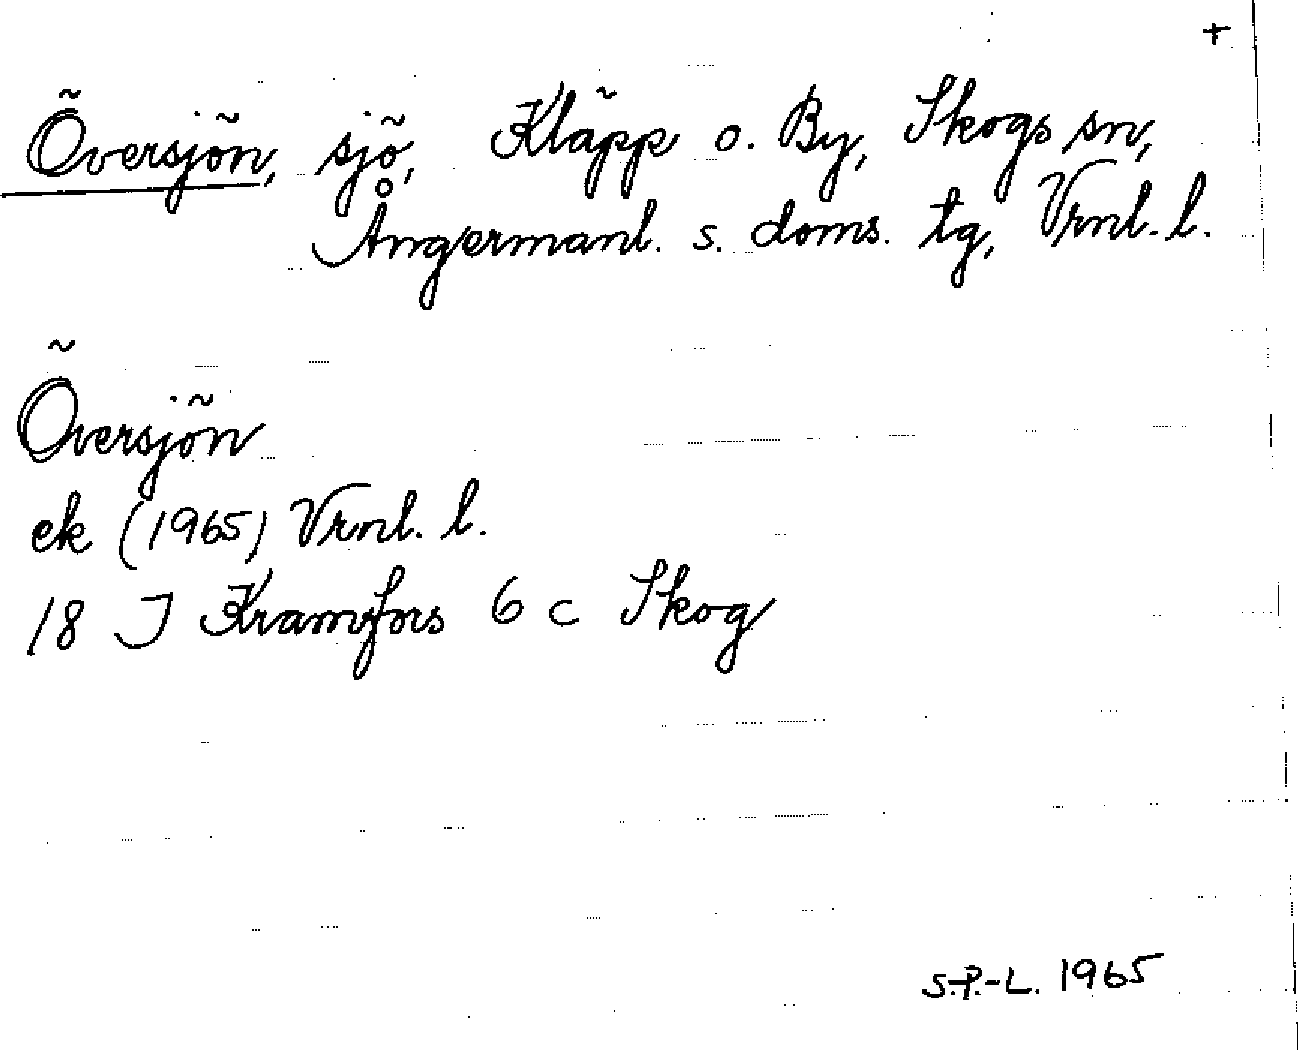 +
Översjön, sjö, Kläpp o. By, Skogs sn,
Ångermanl. s. doms. tg, Vrnl. l.
Översjön
ek (1965) Vrnl. l.
18 J Kramfors 6 c Skog
S.-P.-L. 1965